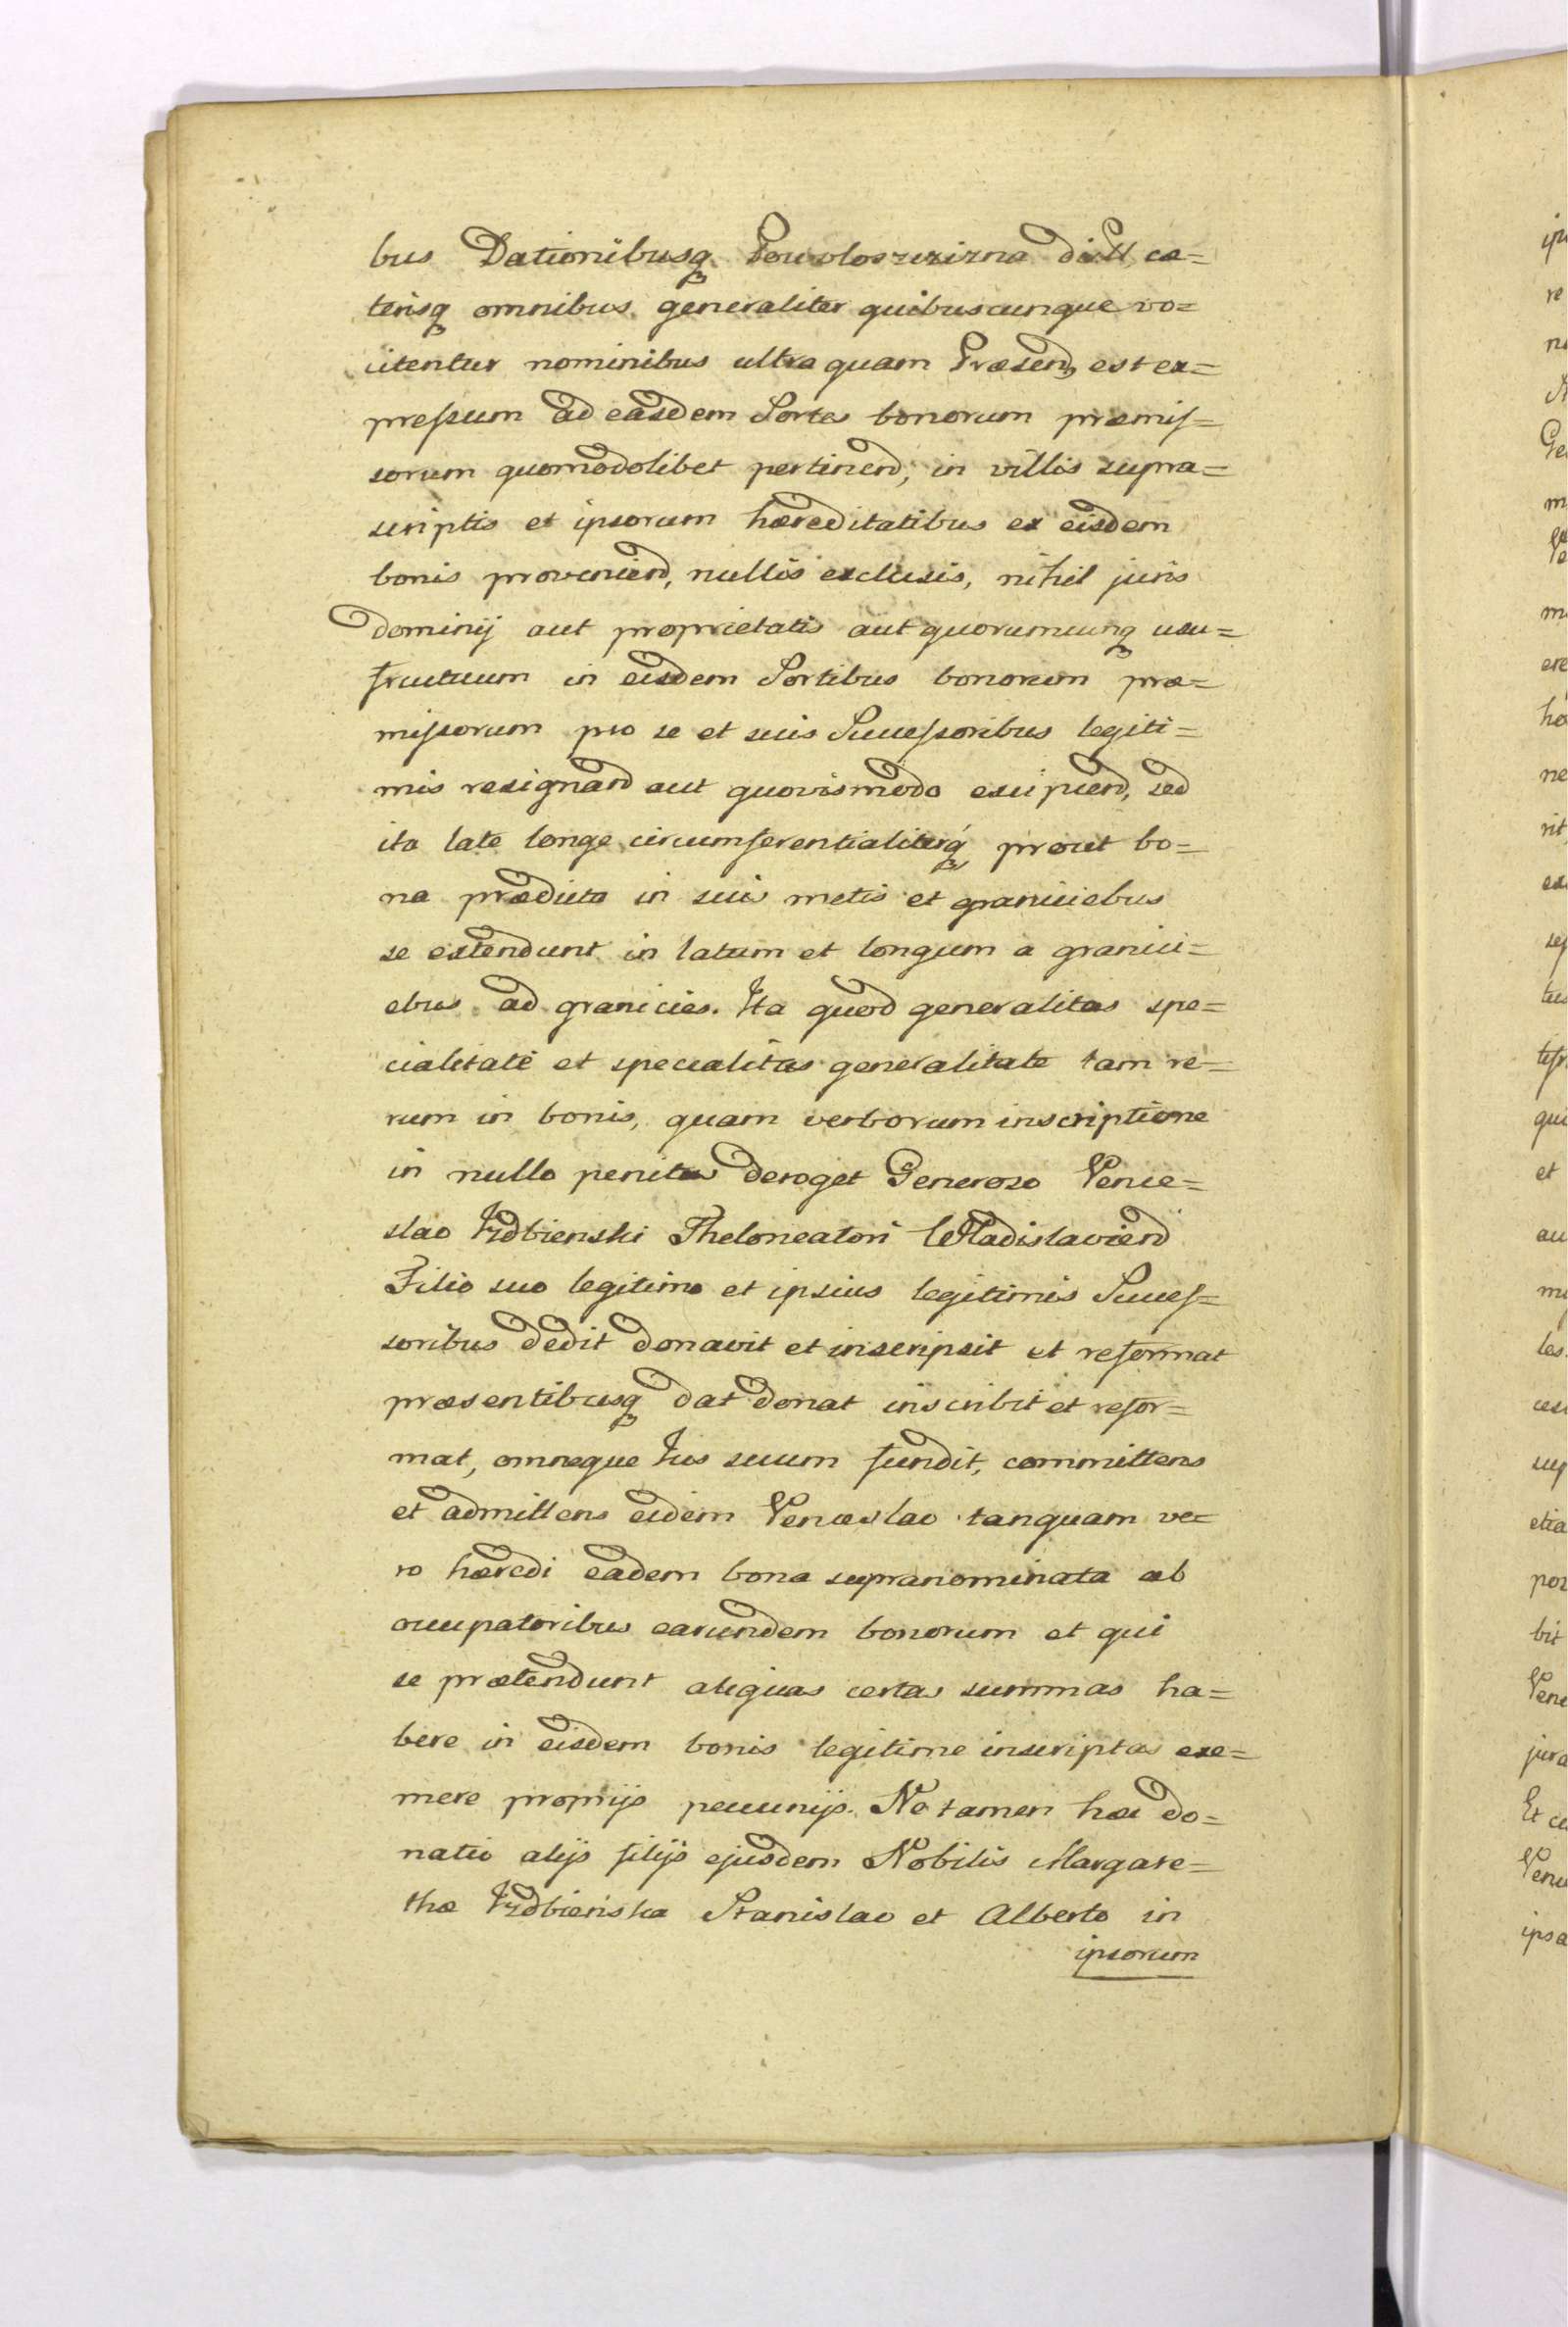 bus Dationibusq Powolosczizna dictt, cæ=
terisq omnibus generaliter quibuscunque vo=
citentur nominibus ultra quam Præsend est ex=
preſsum ad easdem Sortes bonorum præmiſ=
sorum quomodolibet pertinend, in villis supra=
scriptis et ipsorum hæreditatibus ex eisdem
bonis proveniend, nullis exclusis, nihil juris
dominij aut proprietatis aut quorumcunq usu=
fructuum in eisdem Sortibus bonorum præ=
miſsorum pro se et suis Succeſsoribus legiti=
mis resignand aut quovismodo excipiend, sed
ita late longe circumferentialiterq prout bo=
na prædicta in suis metis et graniciebus
se extendunt in latum et longum a granici=
ebus ad granicies. Ita quod generalitas spe=
cialitate et specialitas generalitate tam re=
rum in bonis, quam verborum inscriptione
in nullo penitus deroget Generoso Vence=
slao Izdbienski Theloneatori Wladislaviend
Filio suo legitimo et ipsius legitimis Succeſ=
soribus dedit donavit et inscripsit et reformat
præsentibusq dat donat inscribit et refor=
mat, omneque Ius suum fundit, committens
et admittens eidem Venceslao tanquam ve=
ro hæredi eadem bona supranominata ab
occupatoribus earundem bonorum et qui
se prætendunt aliquas certas summas ha=
bere in eisdem bonis legitime inscriptas exe=
mere proprijs pecunijs. Ne tamen hæc do=
natio alijs filijs ejusdem Nobilis Margare=
thæ Izdbienska Stanislao et Alberto in
ipsorum